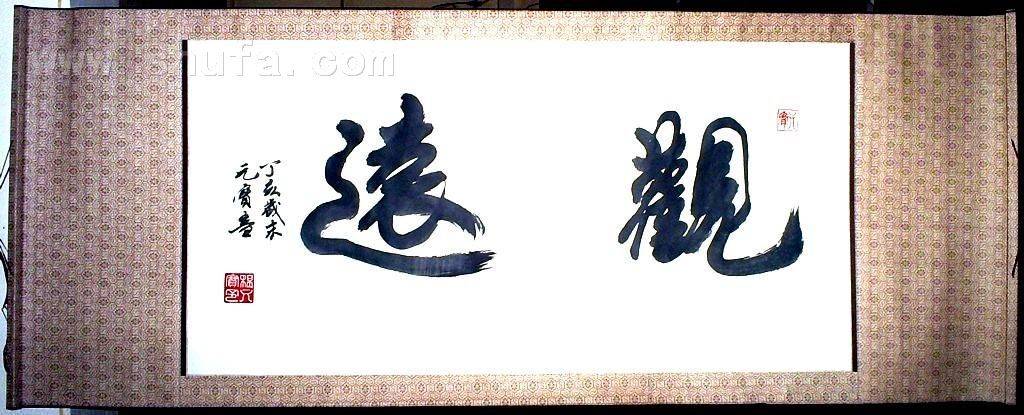 www.shufa.com
觀遠
丁亥歲末
元寶書